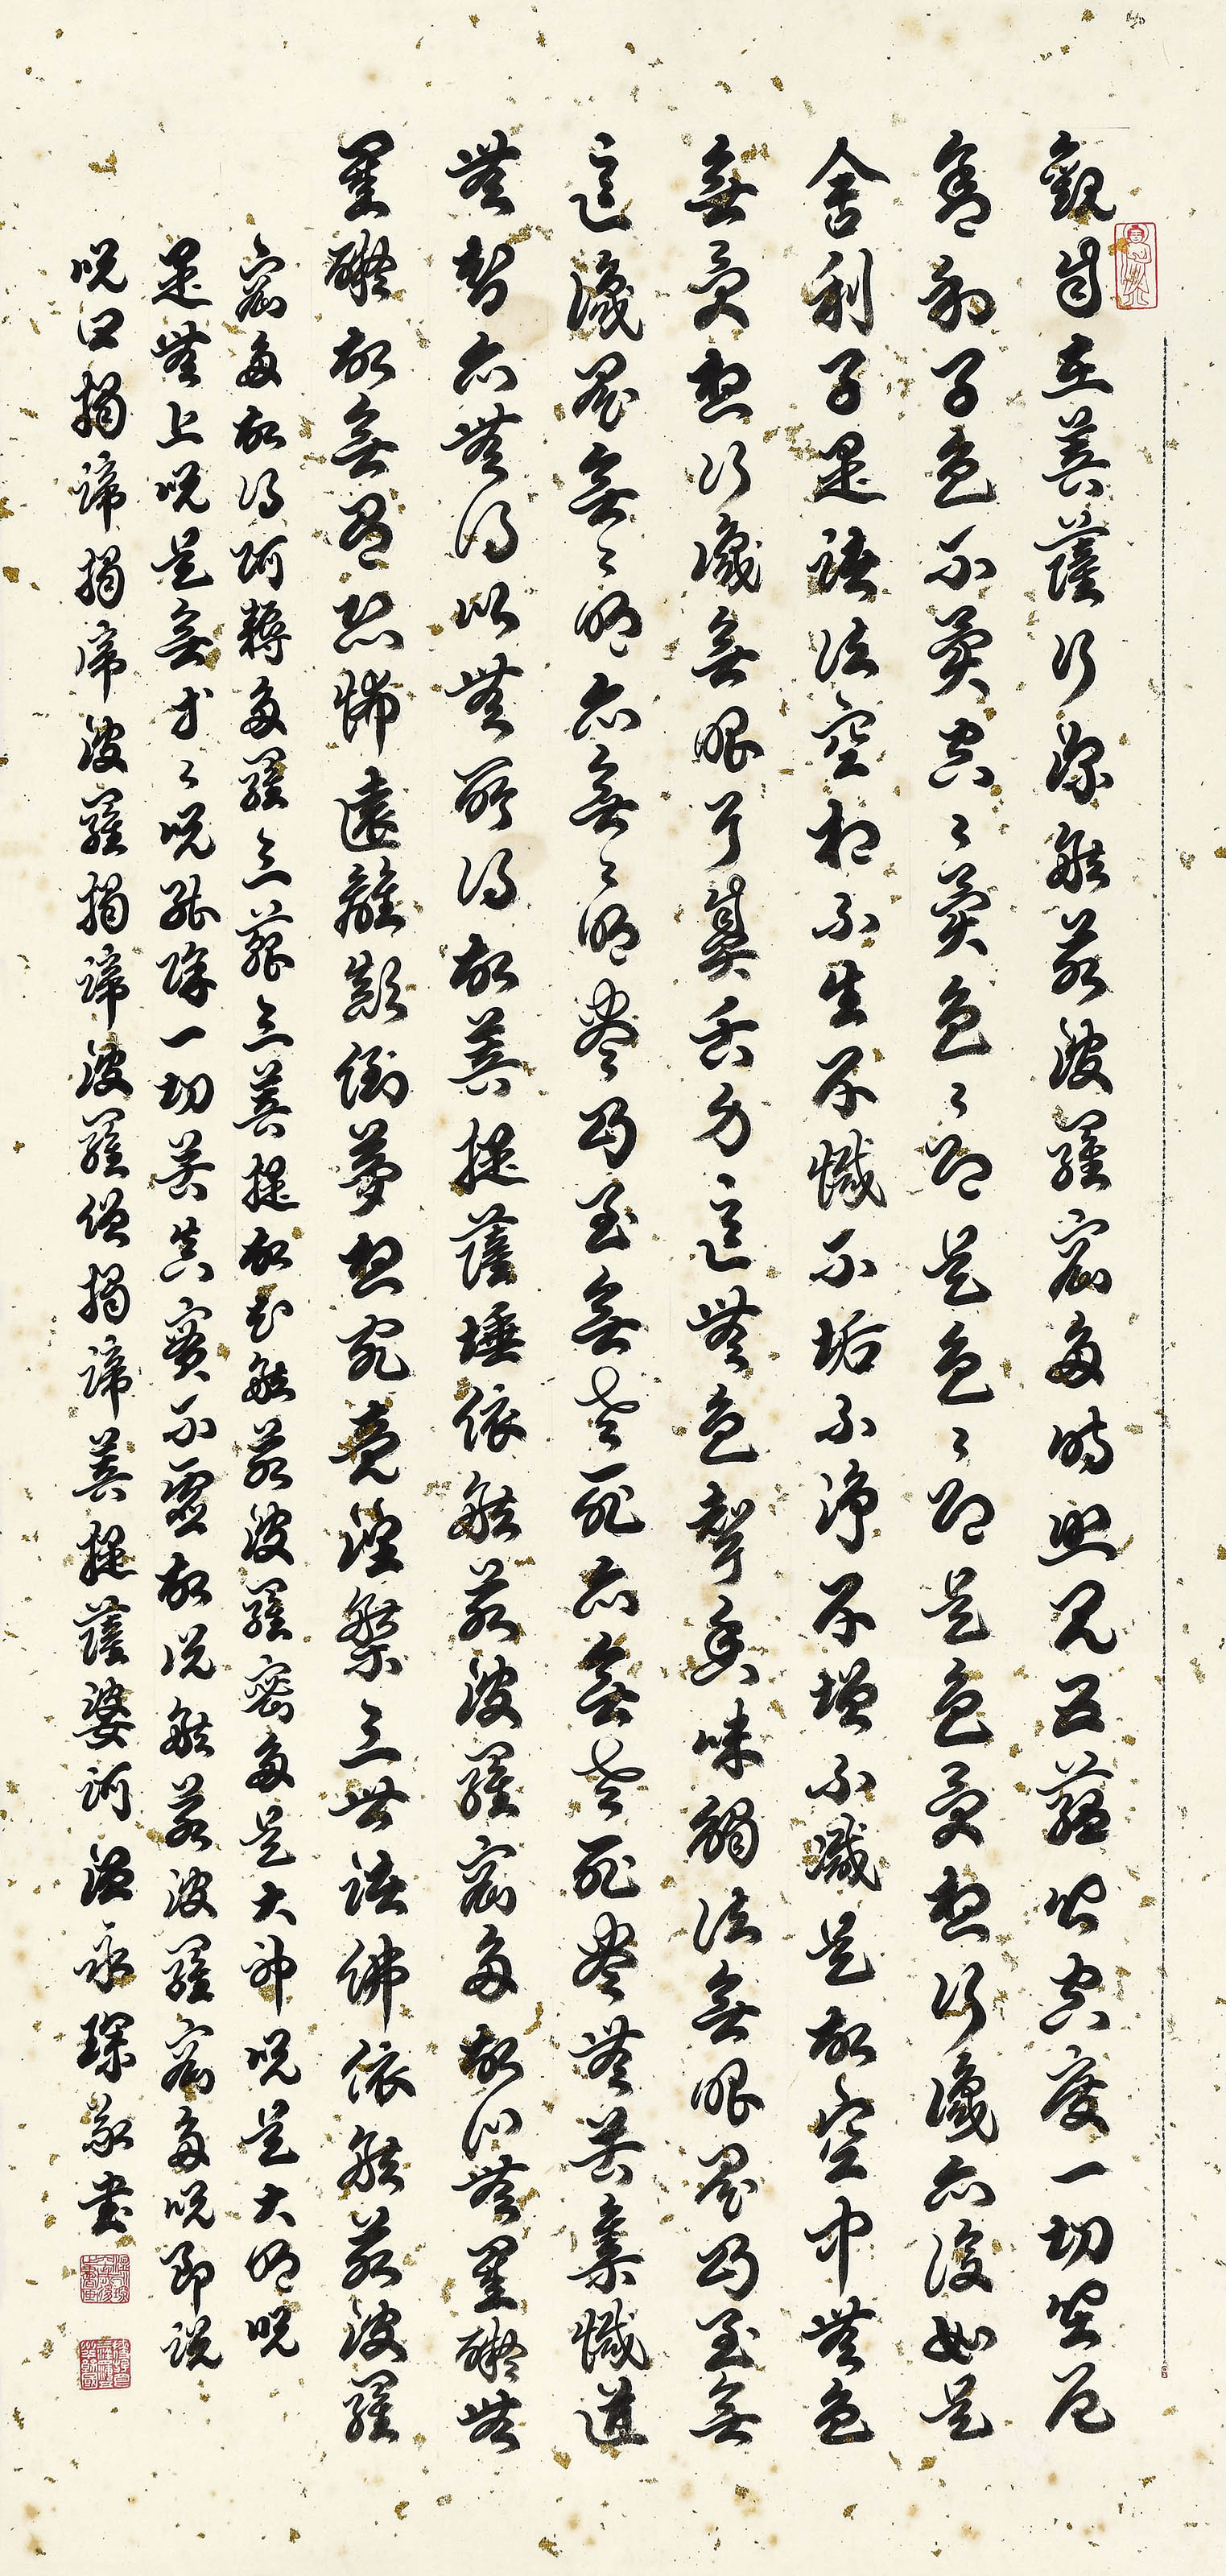 觀自在菩薩行深般若波羅密多時照見五蘊皆空度一切苦厄
舍利子色不異空々異色々即是色々即是色受想行識亦復如是
舍利子是諸法空相不生不滅不垢不淨不增不減是故空中無色
無受想行識無眼耳鼻舌身意無色聲香味觸法無眼界乃至無
意識界無々明亦無々明盡乃至無老死亦無老死盡無苦集滅道
無智亦無得以無所得故菩提薩埵依般若波羅密多故心無罣礙無
罣礙故無有恐怖遠離顛倒夢想究竟涅槃三世諸佛依般若波羅
密多故得阿耨多羅三藐三菩提故知般若波羅密多是大神咒是大明咒
是無上咒是無等々咒能除一切苦真實不虛故說般若波羅密多咒即說
咒曰揭諦揭帝波羅揭諦波羅僧揭諦菩提薩婆訶溫永琛敬書